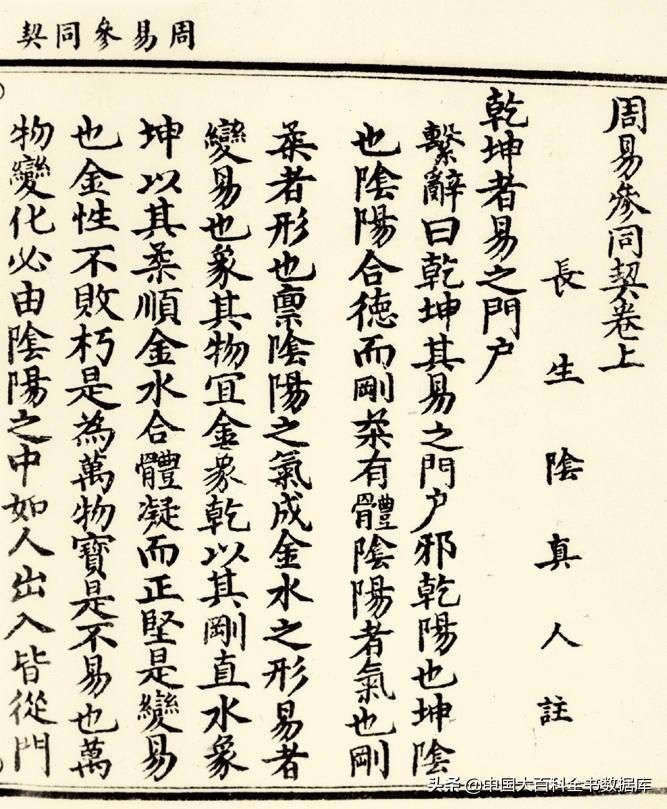 周易參同契
周易參同契卷上
長生陰真人註
乾坤者易之門户
繫辭曰乾坤其易之門户邪乾陽也坤陰
也陰陽合德而剛柔有體陰陽者氣也剛
柔者形也禀陰陽之氣成金水之形易者
變易也象其物宜金象乾以其剛直水象
坤以其柔順金水合體凝而正堅是變易
也金性不敗朽是為萬物寶是不易也萬
物變化必由陰陽之中如人出入皆從門
头条 @中国大百科全书数据库